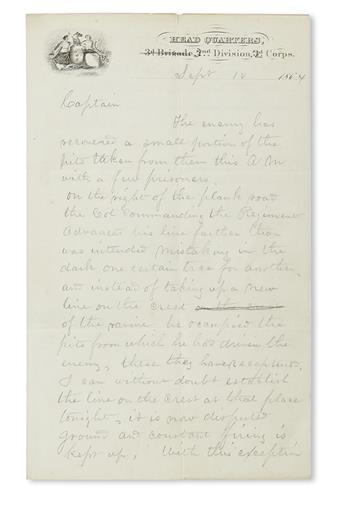 HEAD QUARTERS,
3d Brigade, 2nd Division, 3d Corps.
Sept 10 1864
Captain
The enemy has
recovered a small portion of the
pits taken from them this A M
with a few prisoners.
On the right of the plank road
the Col Commanding the Regiment
Advanced his line farther than
was intended mistaking in the
dark one certain tree for another,
and instead of taking up a new
line on the crest on the crest
of the ravine, he occupied the
pits from which he had driven the
enemy, these they have recaptured.
I can without doubt establish
the line on the crest at that place
tonight, it is now disputed
ground and constant firing is
kept up, With this exception